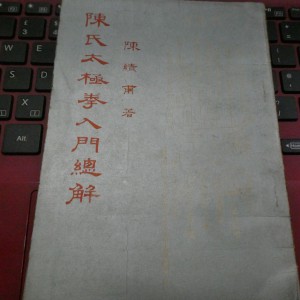 陳氏太極拳入門總解
陳績甫著
Alt